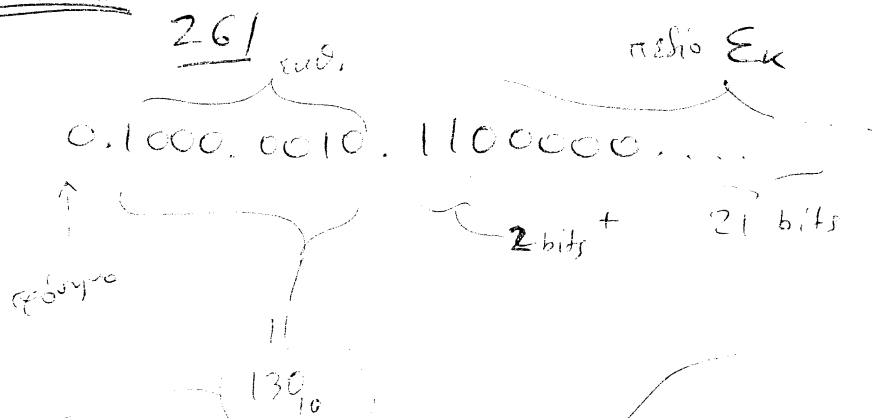 261
εκθ. πεδίο Σκ
0.1000.0010.1100000.....
2 bits + 21 bits
πρόσημο
11
130₁₀